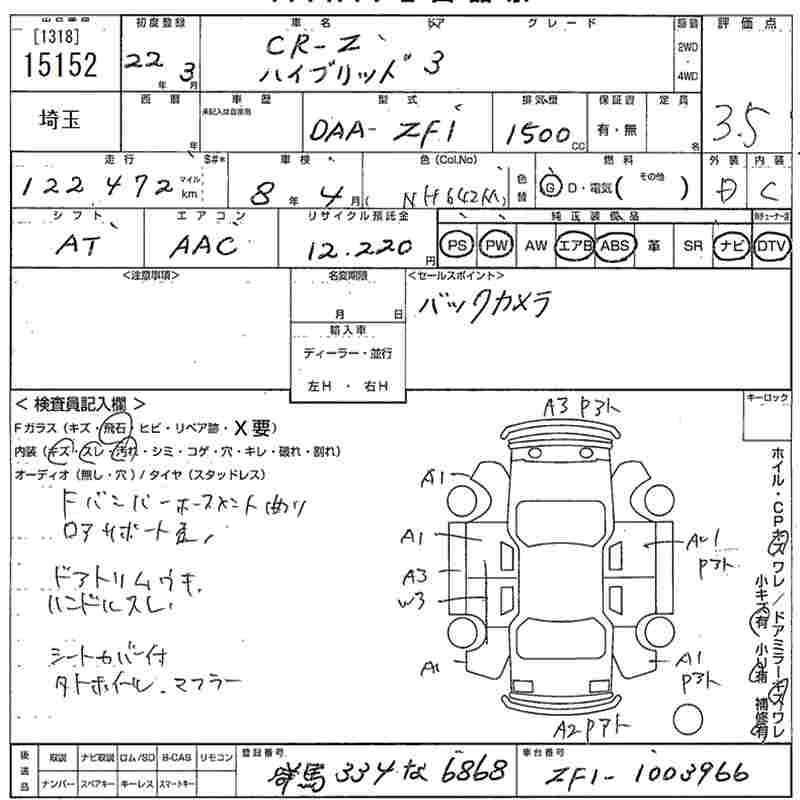 [1318]
15152
埼玉
初度登録
22年 3月
車名
ドア
グレード
CR-Z
ハイブリッド 3
2WD
4WD
評価点
3.5
西暦
年
車歴
未記入は自家用
型式
DAA-ZF1
排気量
1500cc
保証書
有・無
定員
名
走行
122472
マイル
km
車検
8年 4月
色(Col.No)
NH642M
色替
燃料
G・D・電気(その他)
外装
内装
C
シフト
AT
エアコン
AAC
リサイクル預託金
12.220円
純正装備品
PS PW AW エアB ABS 革 SR ナビ DTV
<注意事項>
名変期限
月 日
輸入車
ディーラー・並行
左H ・ 右H
<セールスポイント>
バックカメラ
<検査員記入欄>
Fガラス(キズ・飛石・ヒビ・リペア跡・X要)
内装(キズ・スレ・汚れ・シミ・コゲ・穴・キレ・破れ・割れ)
オーディオ(無し・穴)/タイヤ(スタッドレス)
Fバンパーホースメント曲り
ロアサポート
ドアトリムウキ.
ハンドルスレ.
シートカバー付
タトホイール.マフラー
A3 Pアト
A1
A1
A3
W3
A1
AU1
Pアト
A1
Pアト
A2 Pアト
キーロック
ホイル・CPキズ ワレ/ドアミラーキズ/ワレ
小キズ有 小U有 補修有
後送品
取説 ナビ取説 ロム/SD B-CAS リモコン
ナンバー スペアキー キーレス スマートキー
登録番号
群馬 334 な 6868
車台番号
ZF1-1003966